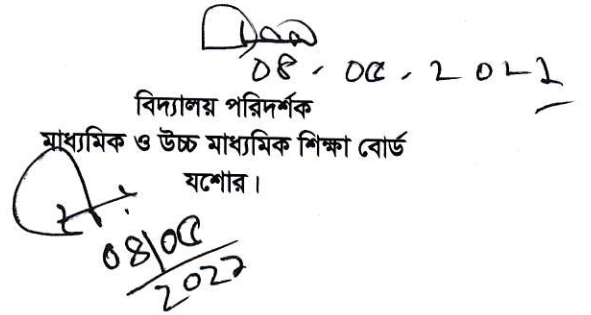 ০৪.০৫.২০২২
বিদ্যালয় পরিদর্শক
মাধ্যমিক ও উচ্চ মাধ্যমিক শিক্ষা বোর্ড
যশোর।
০৪/০৫
২০২২